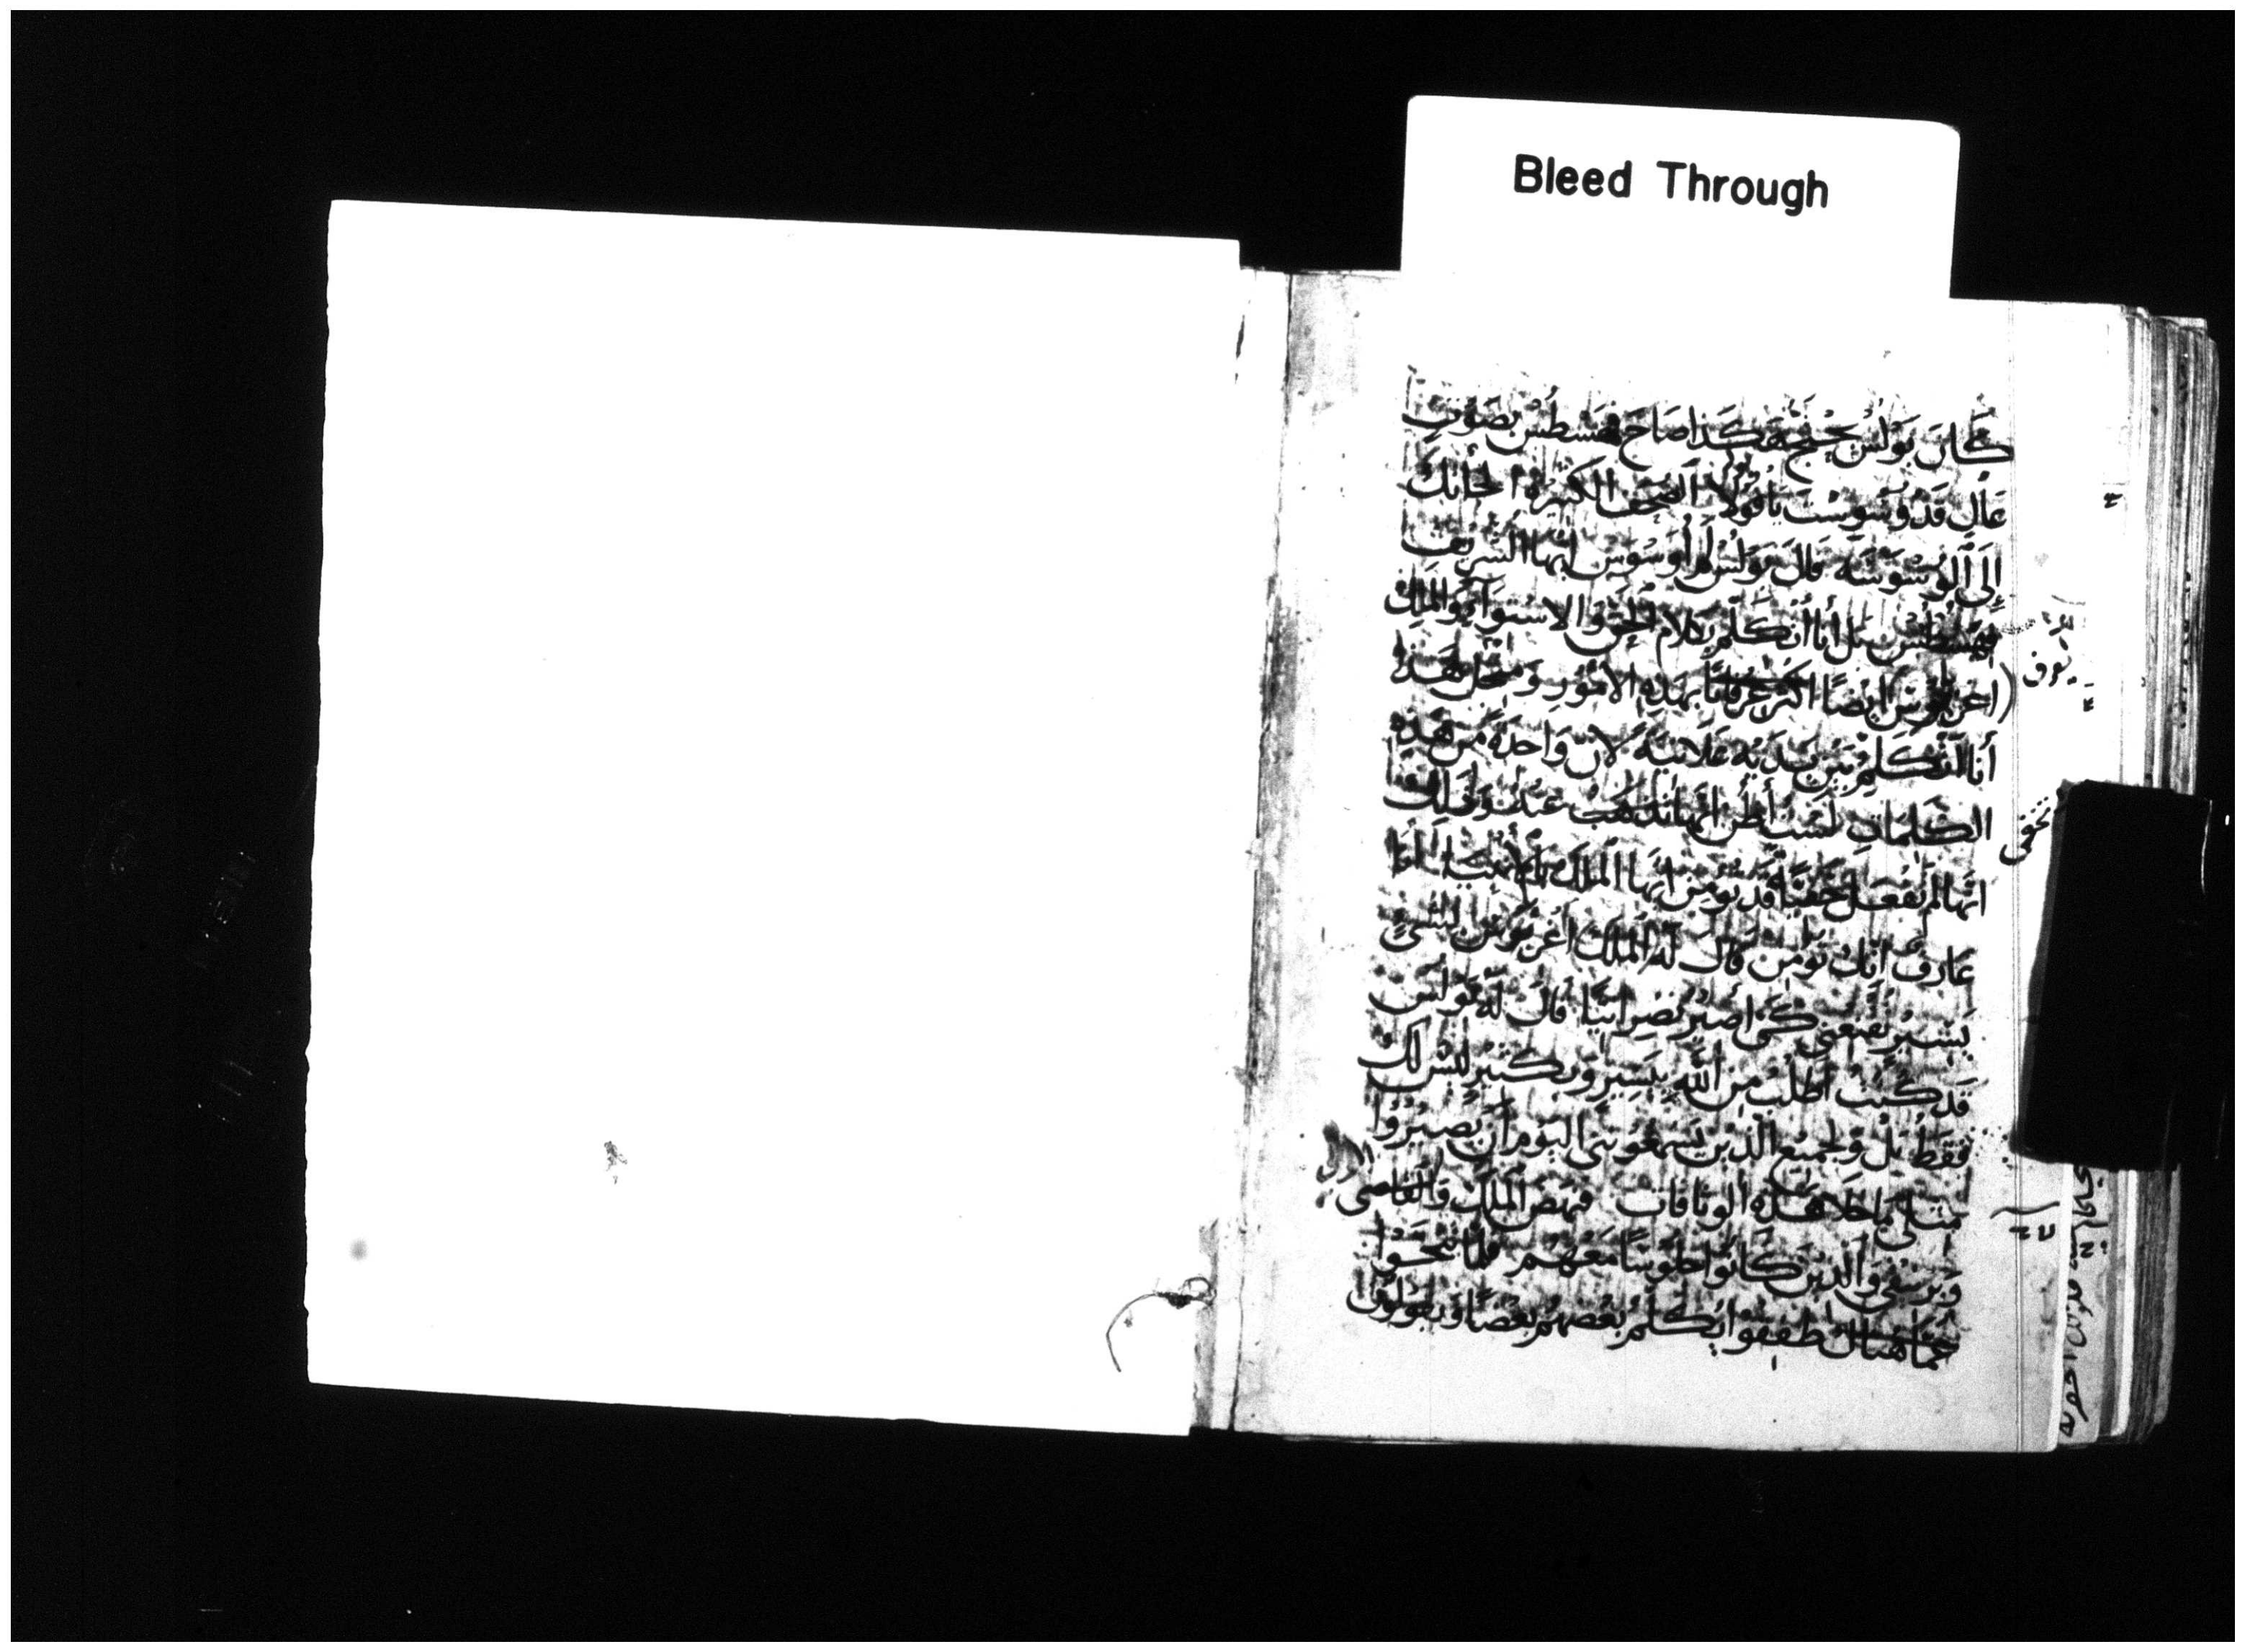 Bleed Through
كَانَ بَوْلُسُ يَحْتَجُّ هَكَذَا صَاحَ فِسْطُسُ بِصَوْتٍ
عَالٍ قَدْ وُسْوِسْتَ يَا بَوْلَا الصُّحُفُ الكَثِيرَةُ أَلْجَأَتْكَ
إِلَى الْوَسْوَسَةِ قَالَ بَوْلُسُ لَمْ أُوَسْوَسْ أَيُّهَا الشَّرِيفُ
فِسْطُسُ بَل أَنَا أَتَكَلَّمُ بِكَلَامِ الْحَقِّ وَالاسْتِوَآءِ وَالمَلِكُ
اغْرِبُّوسُ أَيْضًا أَكْثَرُ عِرْفَانًا بِهَذِهِ الأُمُوْرِ وَمِنْ أَجْلِ هَذَا
أَنَا أَتَكَلَّمُ بَيْنَ يَدَيْهِ عَلَانِيَةً لأَنَّ وَاحِدَةً مِنْ هَذِهِ
الكَلِمَاتِ لَسْتُ أَظُنُّ أَنَّهَا تَذْهَبُ عَنْهُ وَذَلِكَ
أَنَّهَا لَمْ تُفْعَلْ خَفِيًّا قَدْ تُؤْمِنُ أَيُّهَا المَلِكُ بِالأَنْبِيَاءِ أَنَا
عَارِفٌ أَنَّكَ تُؤْمِنُ قَالَ لَهُ المَلِكُ اغْرِبُّوسُ بِشَيْءٍ
يَسِيْرٍ تُقْنِعُنِي كَيْ أَصِيْرَ نَصْرَانِيًّا قَالَ لَهُ بَوْلُسُ
قَدْ كُنْتُ أَطْلُبُ مِنَ اللهِ بِيَسِيْرٍ وَبِكَثِيْرٍ لَيْسَ لَكَ
فَقَطْ بَلْ وَلِجَمِيْعِ الَّذِيْنَ يَسْمَعُوْنَنِي اليَوْمَ أَنْ يَصِيْرُوْا
مِثْلِي مَا خَلَا هَذِهِ الوِثَاقَاتِ فَنَهَضَ المَلِكُ وَالقَاضِي
وَبَرْنِيْقِي وَالَّذِيْنَ كَانُوْا جُلُوْسًا مَعَهُمْ فَلَمَّا تَنَحَّوْا
عَمَّا هُنَالِكَ طَفِقُوْا يُكَلِّمُ بَعْضُهُمْ بَعْضًا وَيَقُوْلُوْنَ